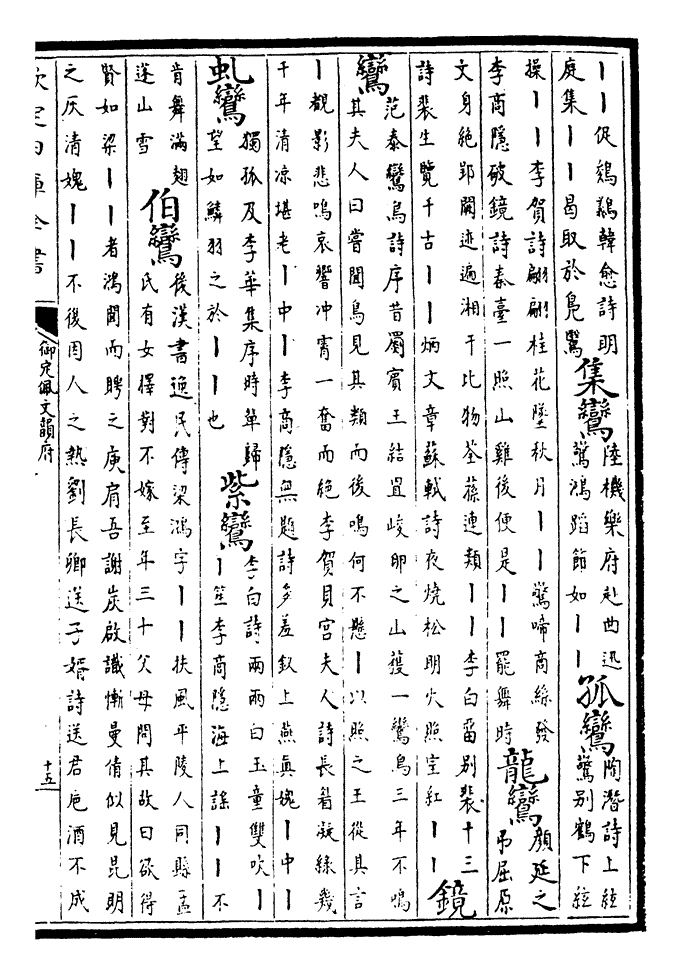 丨丨促鵷鷁韓愈詩明
庭集丨丨曷取於鳧鷖
集鸞
陸機樂府赴曲迅
驚鴻蹈節如丨丨
孤鸞
陶潛詩上絃
驚別鶴下絃
操丨丨李賀詩翩翩桂花墜秋月丨丨驚啼商絲發
李商隱破鏡詩秦臺一照山雞後便是丨丨罷舞時
龍鸞
顔延之
弔屈原
文身絶郢闕迹遍湘干比物荃蓀連類丨丨李白留别裴十三
詩裴生覽千古丨丨炳文章蘇軾詩夜燒松明火照室紅丨丨
鏡
鸞
范泰鸞鳥詩序昔罽賓王結罝峻卯之山獲一鸞鳥三年不鳴
其夫人曰嘗聞鳥見其類而後鳴何不懸丨以照之王從其言
丨觀影悲鳴哀響冲霄一奮而絶李賀貝宫夫人詩長眉凝綠幾
千年清凉堪老丨中丨李商隱無題詩多羞釵上燕眞媿丨中丨
虬鸞
獨孤及李華集序時輩歸
望如鱗羽之於丨丨也
紫鸞
李白詩兩兩白玉童雙吹丨
丨笙李商隱海上謡丨丨不
肯舞滿翅
蓬山雪
伯鸞
後漢書逸民傳梁鴻字丨丨扶風平陵人同縣孟
氏有女擇對不嫁至年三十父母問其故曰欲得
賢如梁丨丨者鴻聞而聘之庾肩吾謝炭啟識慚曼倩似見昆明
之灰清媿丨丨不後因人之熱劉長卿送子壻詩送君卮酒不成
欽定四庫全書
御定佩文韻府
十五